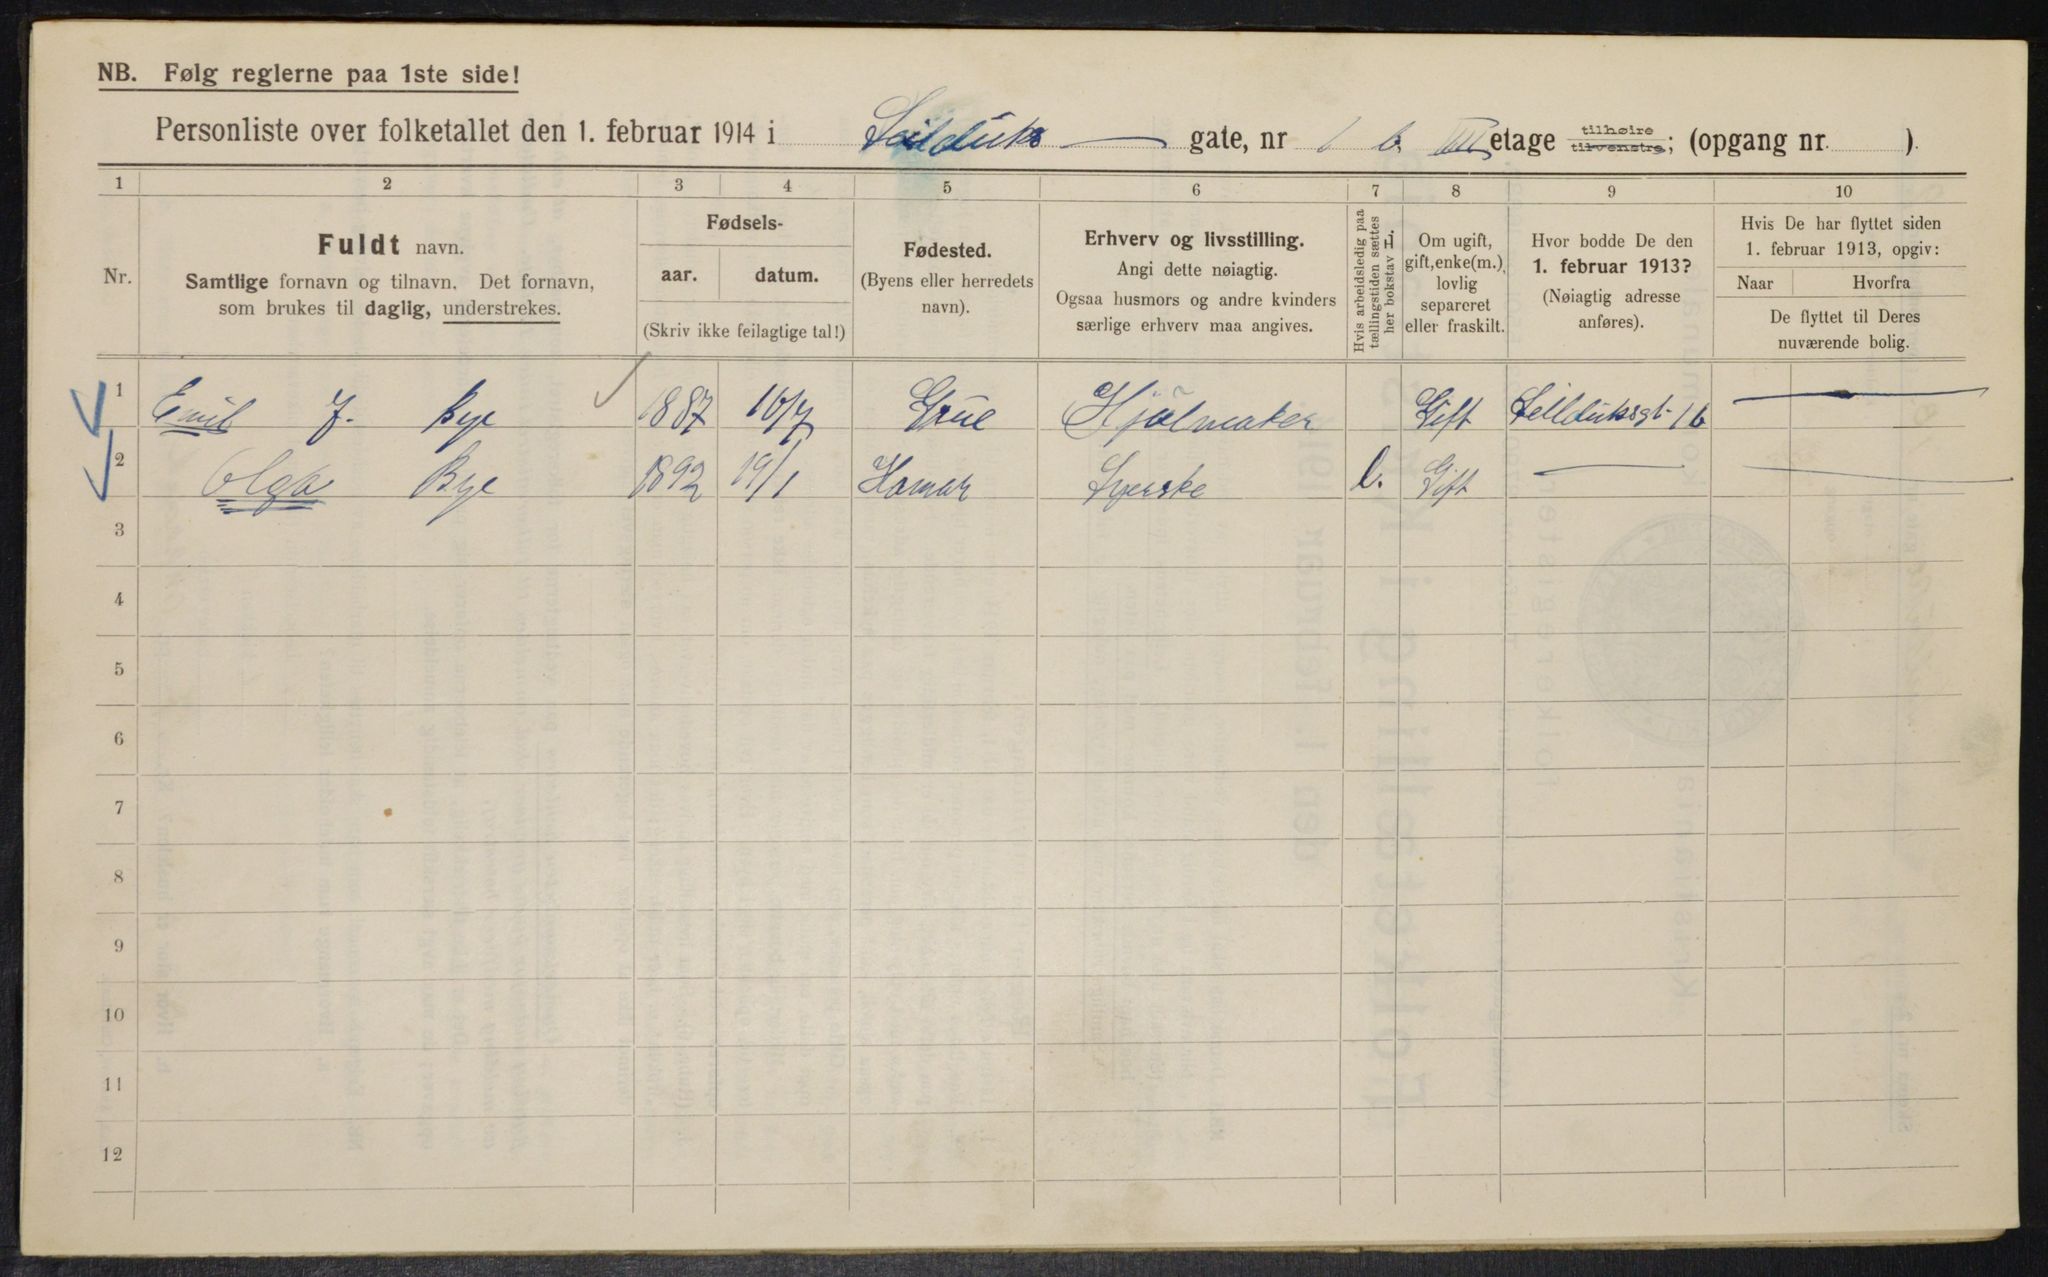 NB. Følg reglerne paa 1ste side!
Personliste over folketallet den 1. februar 1914 i Seilduks gate, nr 1 b. III etage tilhøire tilvenstre; (opgang nr. ).
1 2 3 4 5 6 7 8 9 10
Nr.
Fuldt navn.
Samtlige fornavn og tilnavn. Det fornavn,
som brukes til daglig, understrekes.
Fødsels-
aar. datum.
(Skriv ikke feilagtige tal!)
Fødested.
(Byens eller herredets
navn).
Erhverv og livsstilling.
Angi dette nøiagtig.
Ogsaa husmors og andre kvinders
særlige erhverv maa angives.
Hvis arbeidsledig paa
tællingstiden sættes
her bokstav L.
Om ugift,
gift, enke(m.),
lovlig
separeret
eller fraskilt.
Hvor bodde De den
1. februar 1913?
(Nøiagtig adresse
anføres).
Hvis De har flyttet siden
1. februar 1913, opgiv:
Naar Hvorfra
De flyttet til Deres
nuværende bolig.
1 Emil J. Bye 1887 10/7 Grue Hjulmaker Gift Seilduksgt. 1b
2 Olga Bye 1892 19/1 Hamar Syerske l. Gift
3
4
5
6
7
8
9
10
11
12